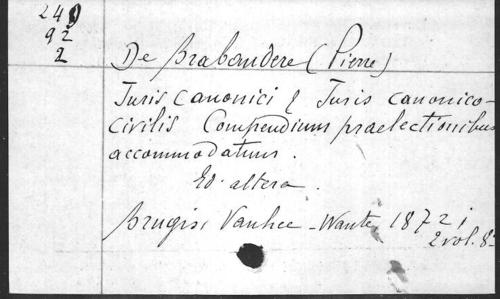 240
92
2
De Brabandere (Pierre)
Juris canonici & Juris canonico-
civilis Compendium praelectionibus
accommodatum.
Ed. altera.
Brugis, Vanhee-Wante, 1872;
2 vol. 8°